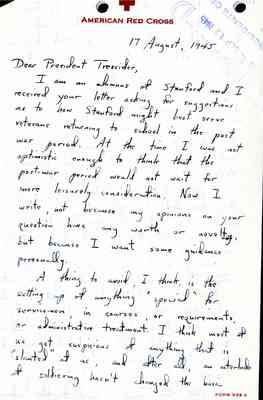 AMERICAN RED CROSS
17 August, 1945
Dear President Tressider,
I am an alumnus of Stanford and I
received your letter asking for suggestions
as to how Stanford might best serve
veterans returning to school in the post
war period. At the time I was not
optimistic enough to think that the
postwar period would not wait for
more leisurely consideration. Now I
write, not because my opinions on your
question have any worth or novelty,
but because I want some guidance
personally.
A thing to avoid, I think, is the
setting up of anything "special" for
servicemen, in courses, or requirements,
or administrative treatment. I think most of
us get suspicious of anything that is
"slanted" at us, and after all, an interlude
of soldiering hasn't changed the basic
FORM 539 A